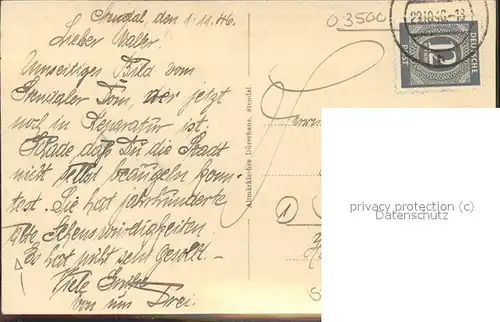 Stendal, den 1.11.46.
Lieber Walter!
Umseitiges Bild vom
Stendaler Dom, der jetzt
noch in Reparatur ist.
Schade daß Du die Stadt
nicht selbst beaugeln konn-
test. Sie hat jahrhunderte
alte Sehenswürdigkeiten.
Es hat nicht sein gesollt.-
Viele Grüße
von uns Drei.
Altmärkisches Dürerhaus, Stendal.
03500
DEUTSCHE
POST
12
1
privacy protection (c)
Datenschutz